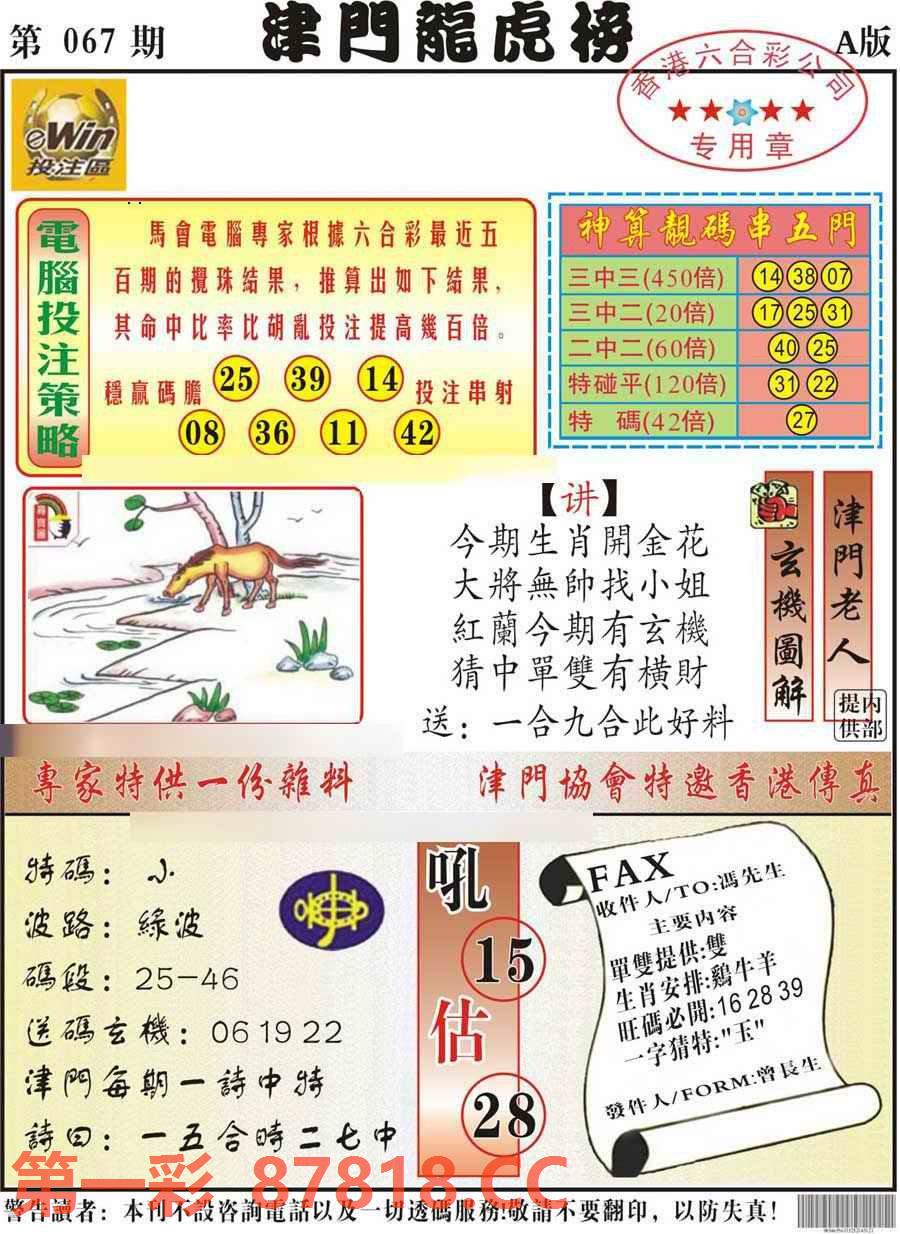 第 067 期
津門龍虎榜
A版
香港六合彩公司
专用章
eWin
投注區
電腦投注策略
馬會電腦專家根據六合彩最近五
百期的攪珠結果，推算出如下結果，
其命中比率比胡亂投注提高幾百倍。
穩贏碼膽 25 39 14 投注串射
08 36 11 42
神算靚碼串五門
三中三(450倍) 14 38 07
三中二(20倍) 17 25 31
二中二(60倍) 40 25
特碰平(120倍) 31 22
特 碼(42倍) 27
【讲】
今期生肖開金花
大將無帥找小姐
紅蘭今期有玄機
猜中單雙有橫財
送：一合九合此好料
玄機圖解
津門老人
内部提供
專家特供一份雜料
津門協會特邀香港傳真
特碼：小
波路：綠波
碼段：25-46
送碼玄機：06 19 22
津門每期一詩中特
詩曰：一五合時二七中
吼
15
估
28
FAX
收件人/TO:馮先生
主要内容
單雙提供:雙
生肖安排:鷄牛羊
旺碼必開:16 28 39
一字猜特:"玉"
發件人/FORM:曾長生
第一彩 87818.CC
警告讀者：本刊不設咨詢電話以及一切透碼服務!敬請不要翻印，以防失真!